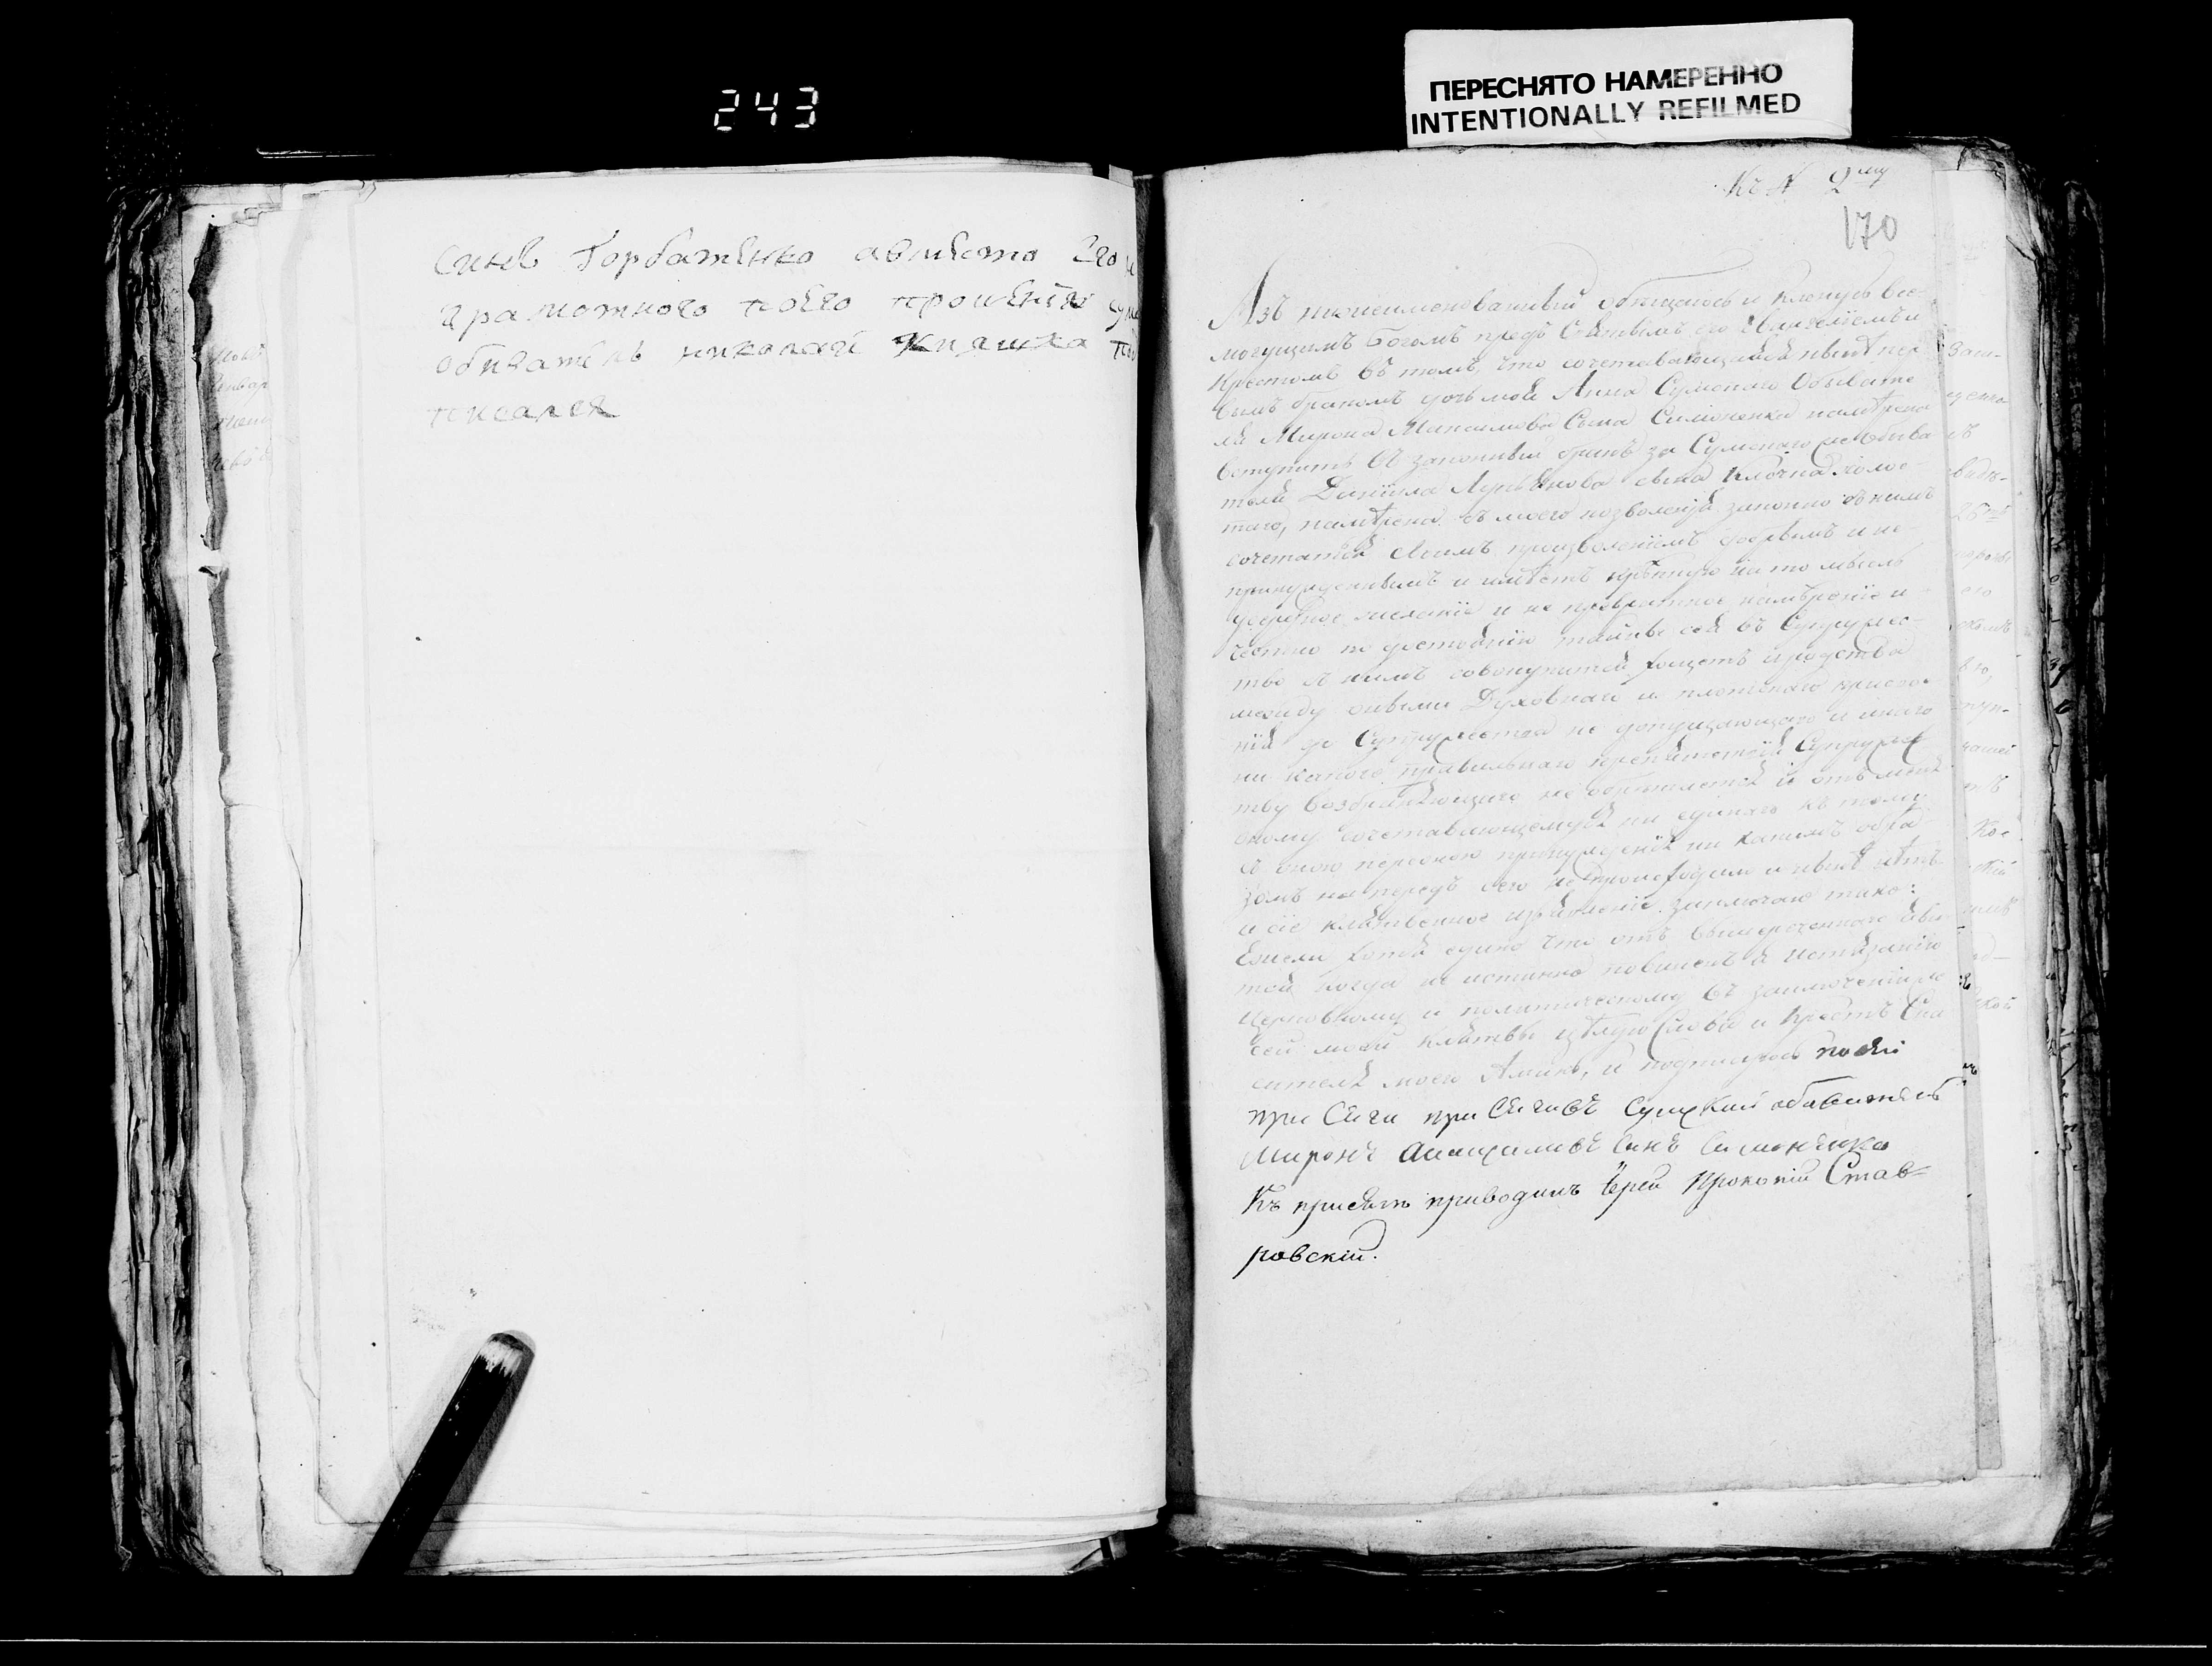 243
ПЕРЕСНЯТО НАМЕРЕННО
INTENTIONALLY REFILMED
синъ Горбатѣнко авмѣсто Его
грамотного поего прошѣнїю
обиватѣль николай Кияшка
писался
Къ № 2му
170
Азъ нижеименованный обѣщаюсь и кленусь все-
могущимъ Богомъ предъ Святымъ его Евангелїемъ и
Крестомъ въ томъ, что сочетавающаяся нынѣ пер
вымъ бракомъ дочь моя Анна Сумскаго Обывате
ля Мирона Максимова Сына Симоненка намѣрена
вступить въ законный бракъ за Сумскаго обыва
теля Данїила сына холос
таго, намѣрена съ моего позволенїя законно съ нимъ
сочетатся своимъ произволенїемъ добрымъ и не
принужденнымъ и имѣетъ крѣпкую на то мысль
усердное желанїе и не превратное намѣренїе и
честно по достоянїю тайны сея въ Супружес
тво с нимъ совокупится хощетъ и родства
между оными Духовнаго и плотскаго присвое
нїя до Супружества не допущающаго и инаго
ни какого правильнаго препятствїя Супружес
тву возбраняющаго не обрѣтается и отъ меня
оному сочетавающемуся ни единаго къ тому
с оною персоною принужденїя ни какимъ обра
зомъ напередъ сего не происходило и нынѣ нѣтъ
и сїе клятвенное изъявленїе заключаю тако:
Ежели хотя едино что отъ вышереченнаго яви
тся когда не истинно повиненъ я истязанїю
Церковному и политическому въ заключенїи же
сей моей клятвы цѣлую Слова и Крестъ Спа
сителя моего Аминь, и подписуюсь
при Сѣги при Сѣгивъ Сумский обавитель
Миронъ синъ Симонѣнко
Къ присягѣ приводилъ Іерей Прокопїй Став=
ровскїй.